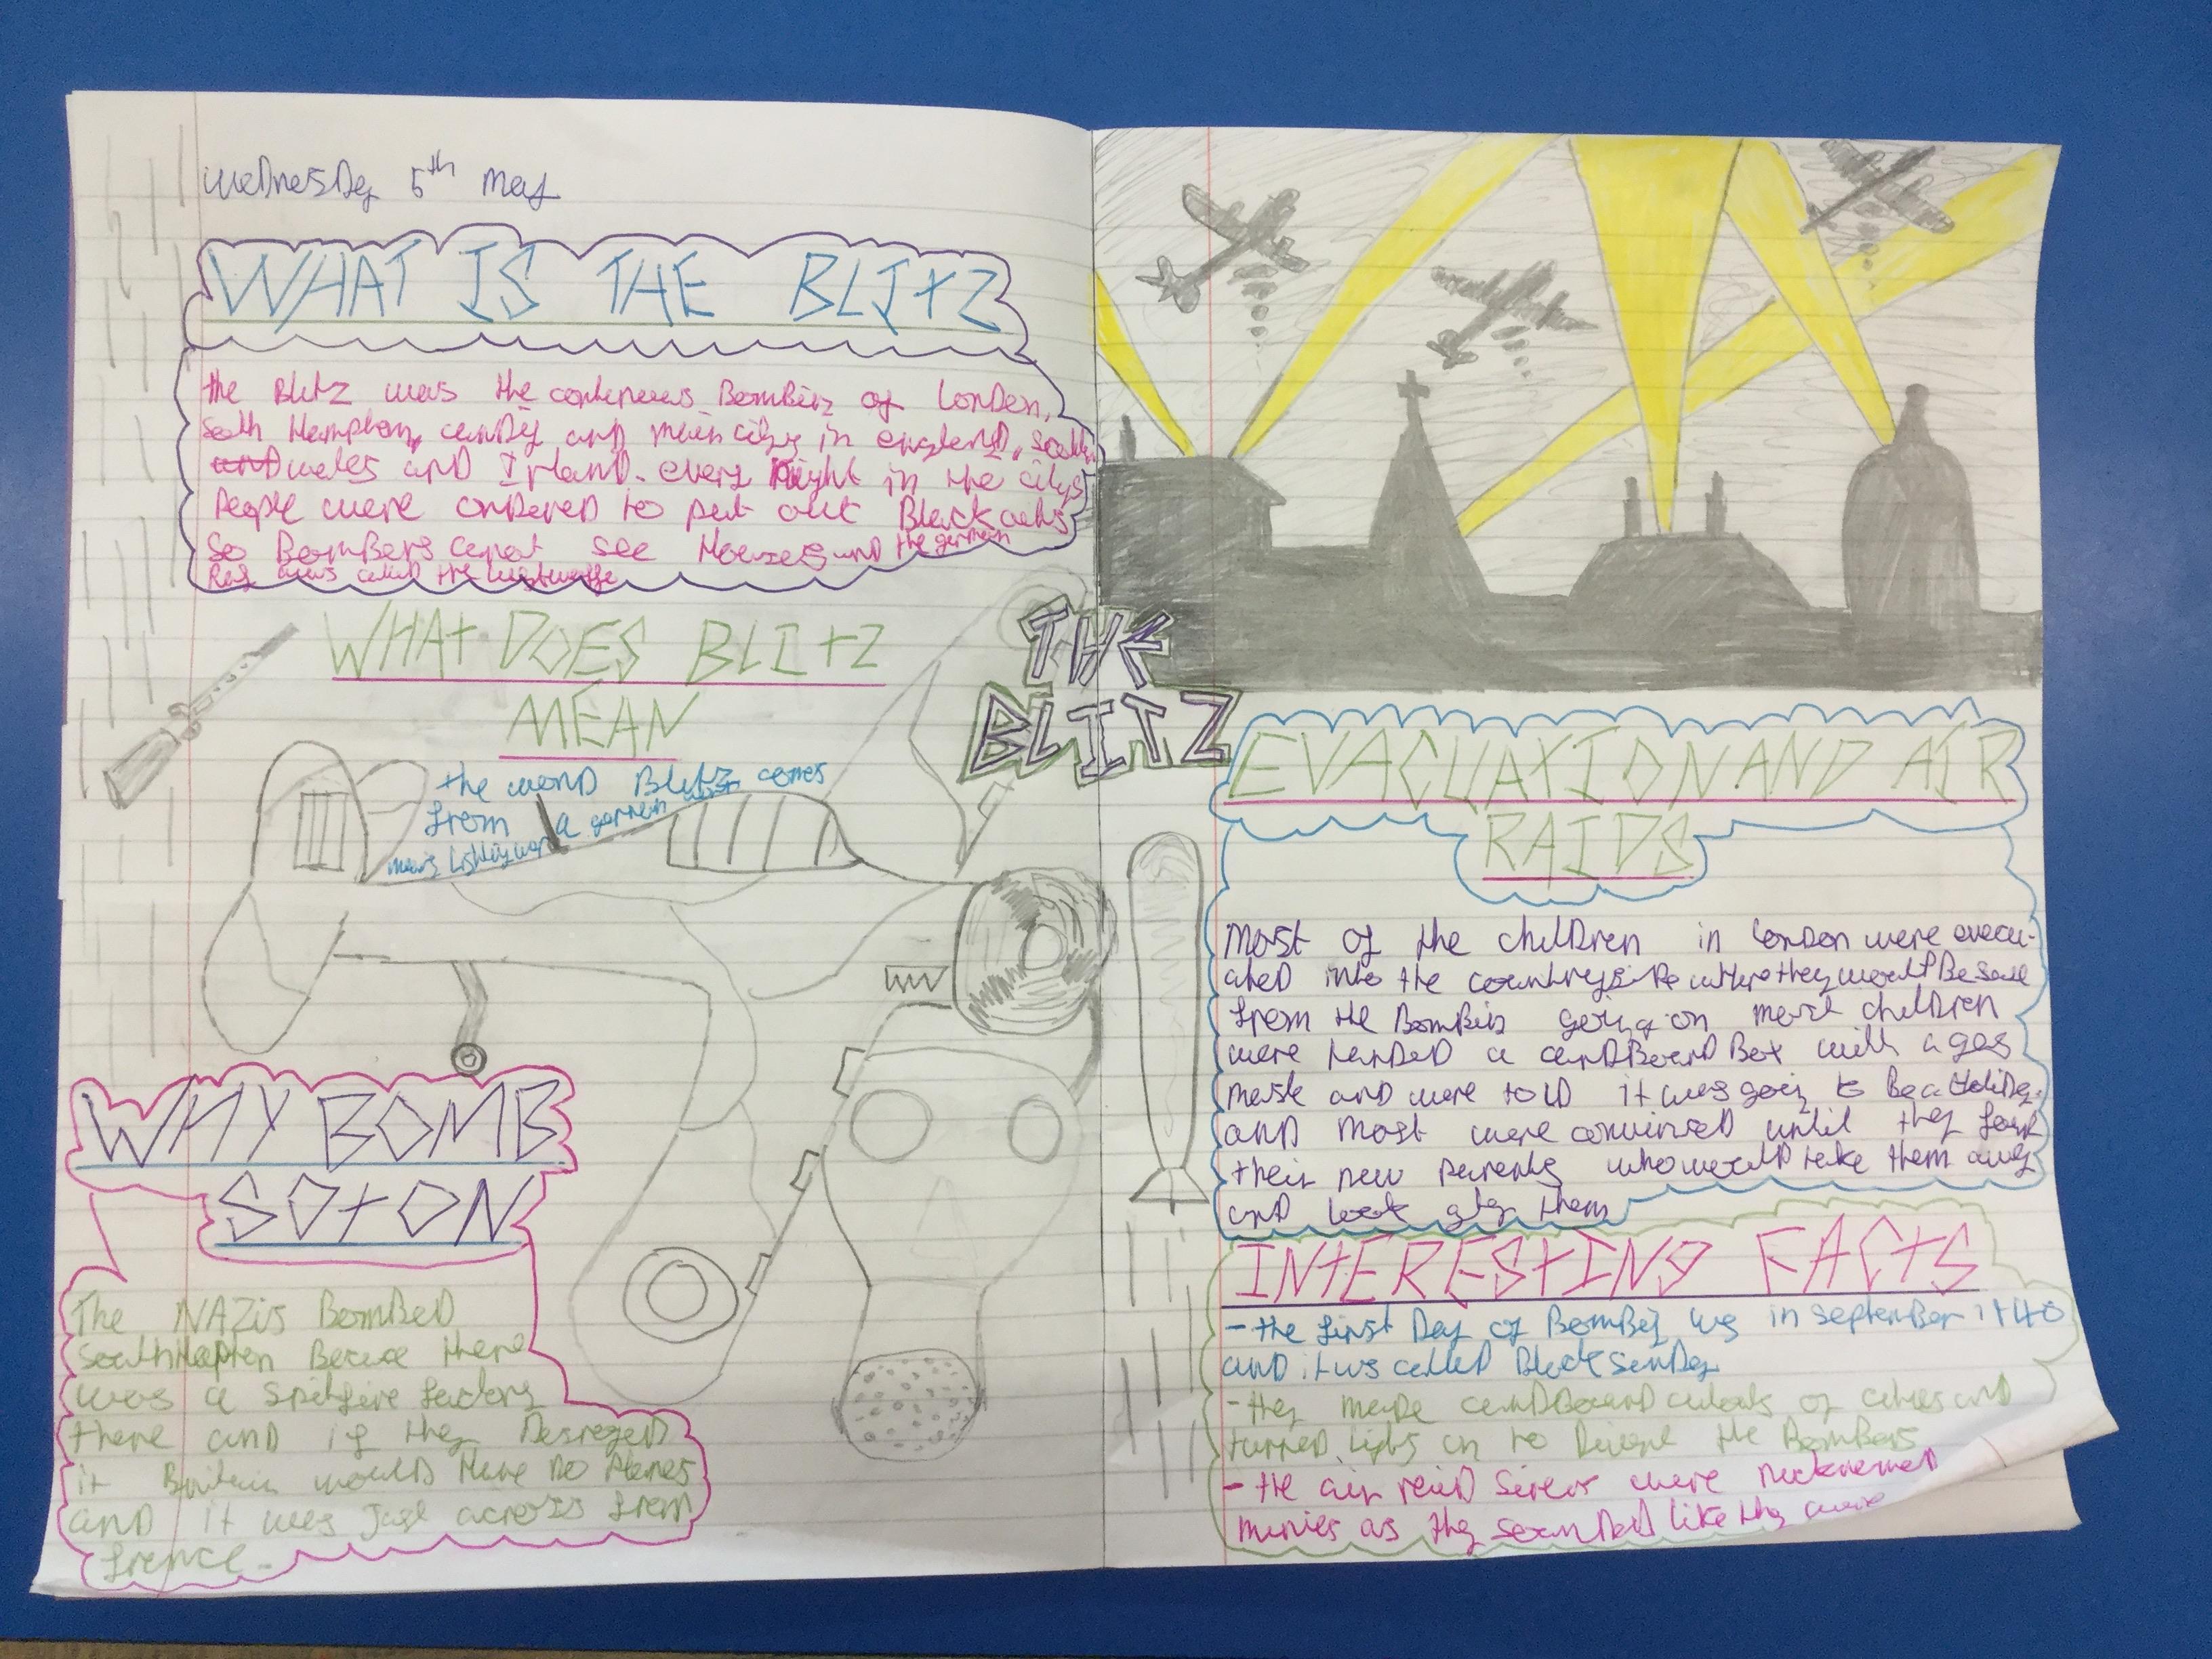 Wednesday 5th May
WHAT IS THE BLITZ
the Blitz was the contineus Bombing of London,
South Hampton, cardif and main citys in england, scotland
and wales and Irland. every Night in the citys
People were ordered to put out Blackouts
So Bombers canot see Houses and the german
Raf was called the luftwaffe
WHAT DOES BLITZ
MEAN
the word Blitz comes
from a german word
means lightingwar
WHY BOMB
SOTON
The NAZis Bombed
SouthHapton Becuse there
was a Spitfire factory
there and if they Desroyed
it Britain would Have no Planes
and it was just across from
france.
THE
BLITZ
EVACUATION AND AIR
RAIDS
Most of the children in London were evacu-
ated into the countryside where they would Be safe
from the Bombing going on most children
were handed a cardBoard Box with a gas
mask and were told it was going to Be a Holiday.
and most were convinsed until they
their new parents who would take them away
and look after them
INTERESTING FACTS
- the first Day of Bombing was in september 1940
and it was called Black Sunday
- they made cardBoard cutouts of cities and
turned lights on to the Bombers
- the air raid Sirens were nicknamed
minies as they sounded like they were